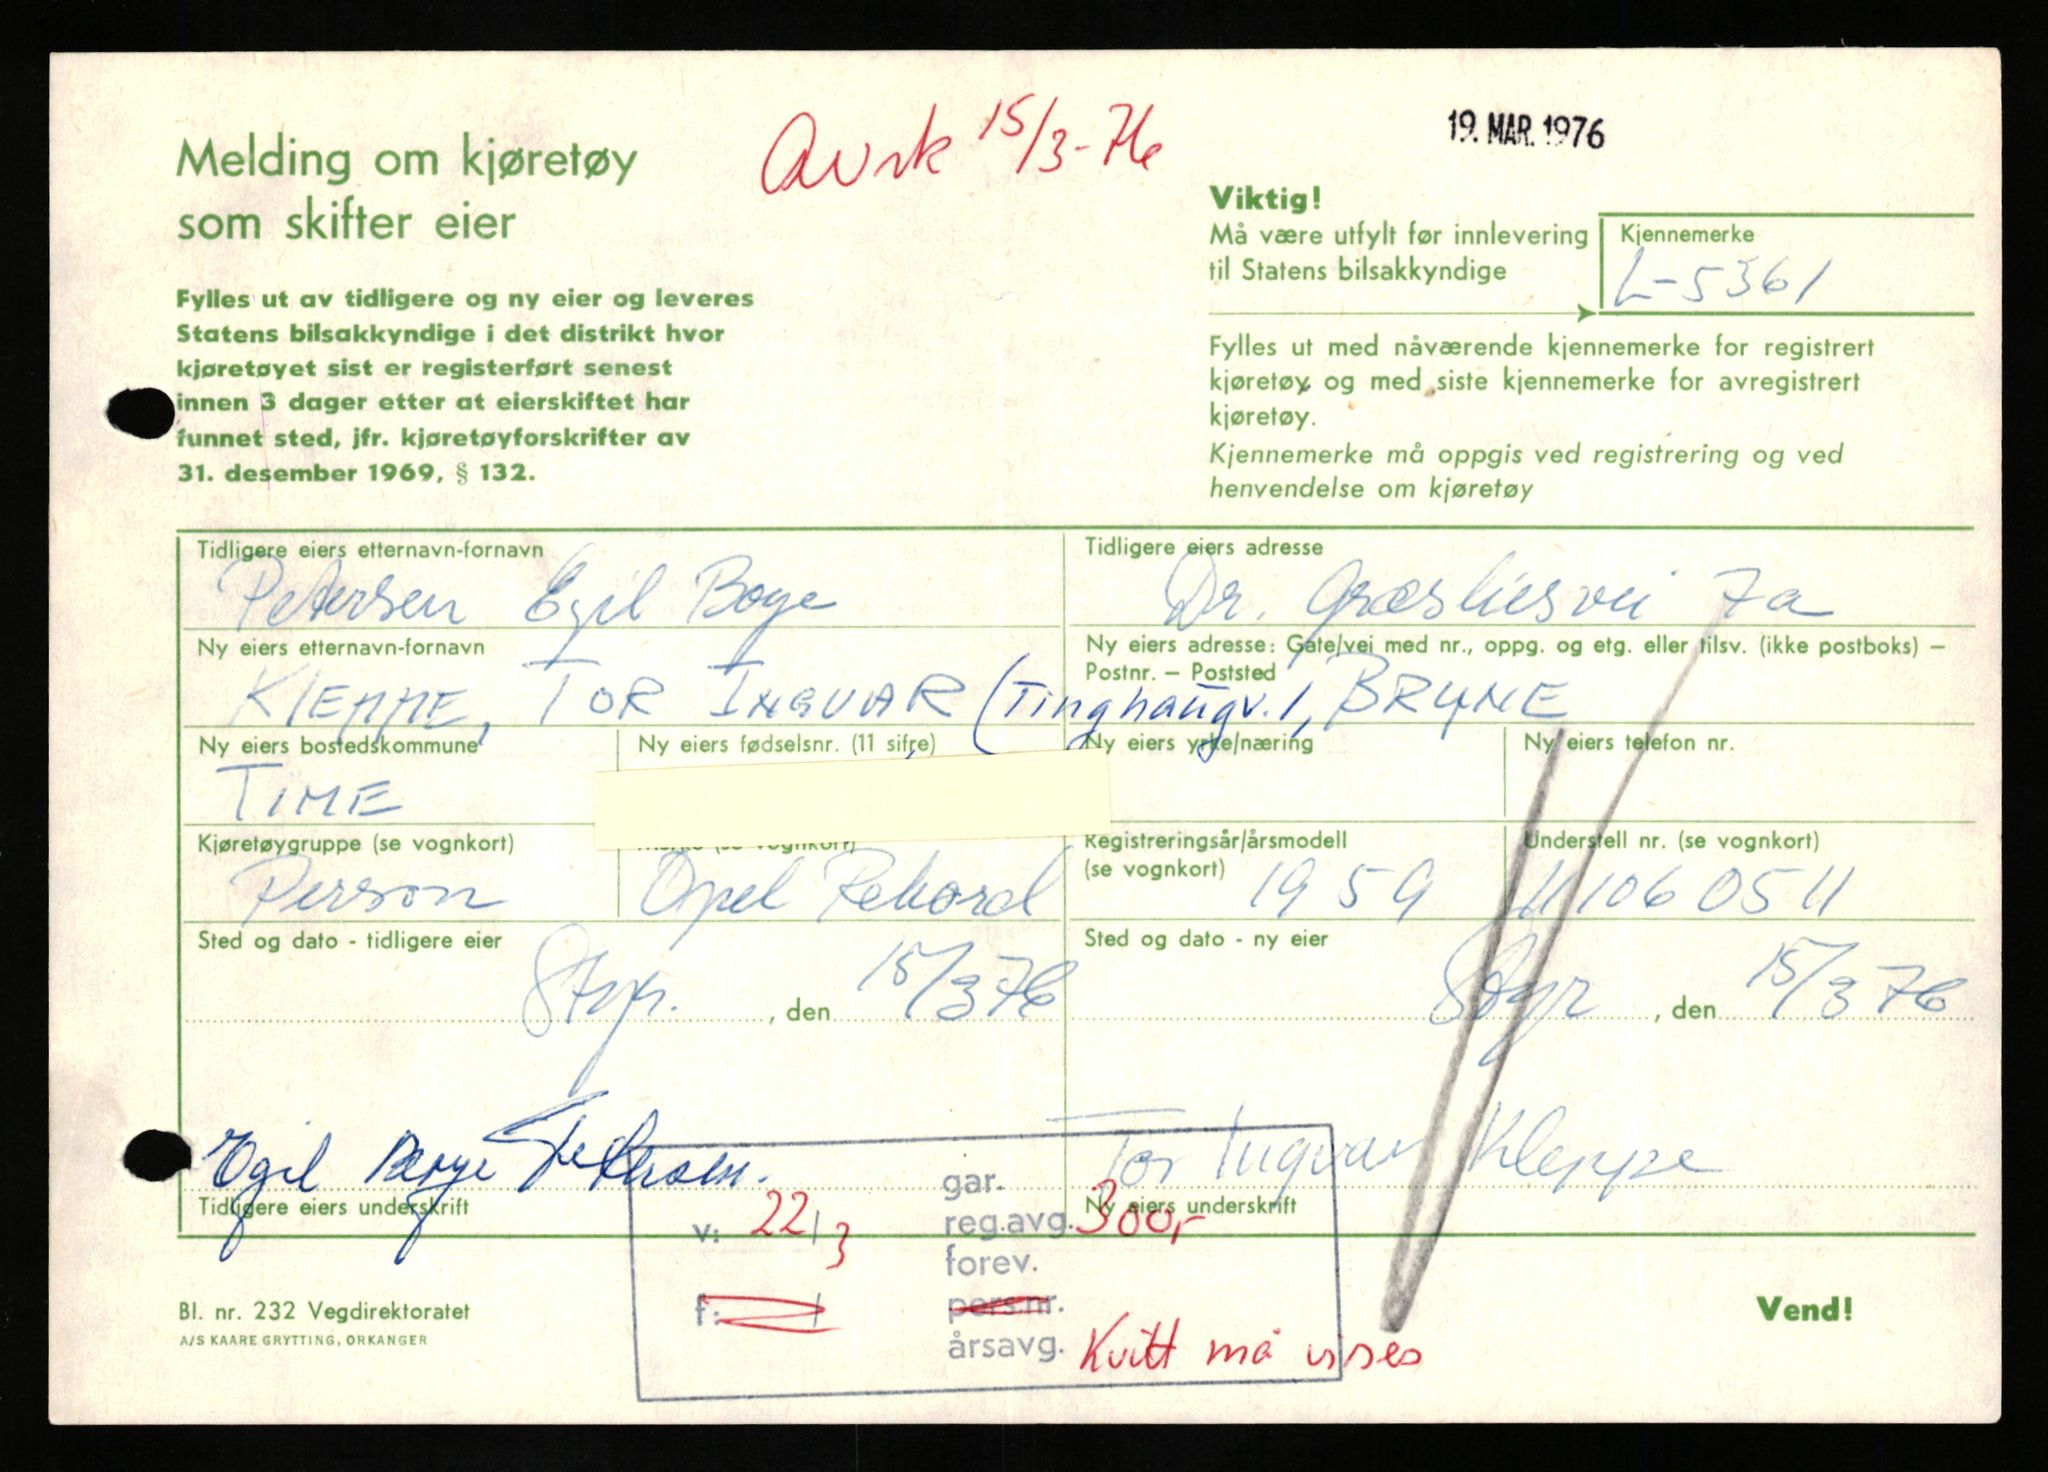 Melding om kjøretøy
som skifter eier
Avrk 15/3-76
19. MAR. 1976
Fylles ut av tidligere og ny eier og leveres
Statens bilsakkyndige i det distrikt hvor
kjøretøyet sist er registerført senest
innen 3 dager etter at eierskiftet har
funnet sted, jfr. kjøretøyforskrifter av
31. desember 1969, § 132.
Viktig!
Må være utfylt før innlevering
til Statens bilsakkyndige
Kjennemerke
L-5361
Fylles ut med nåværende kjennemerke for registrert
kjøretøy og med siste kjennemerke for avregistrert
kjøretøy.
Kjennemerke må oppgis ved registrering og ved
henvendelse om kjøretøy
Tidligere eiers etternavn-fornavn
Petersen Egil Boye
Tidligere eiers adresse
Dr. Græsliesvei 7a
Ny eiers etternavn-fornavn
KLEPPE, TOR INGVAR
Ny eiers adresse: Gate/vei med nr., oppg. og etg. eller tilsv. (ikke postboks) –
Postnr. – Poststed
(Tinghaugv. 1, BRYNE
Ny eiers bostedskommune
TIME
Ny eiers fødselsnr. (11 sifre)
Ny eiers yrke/næring
Ny eiers telefon nr.
Kjøretøygruppe (se vognkort)
Person
Merke (se vognkort)
Opel Rekord
Registreringsår/årsmodell
(se vognkort)
1959
Understell nr. (se vognkort)
111060511
Sted og dato - tidligere eier
, den 15/3 76
Sted og dato - ny eier
, den 15/3 76
Egil Boye Petersen.
Tidligere eiers underskrift
Tor Ingvar Kleppe
Ny eiers underskrift
v: 22/3
f: /
gar.
reg.avg. 300,-
forev.
pers.nr.
årsavg. Kvitt må vises
Bl. nr. 232 Vegdirektoratet
A/S KAARE GRYTTING, ORKANGER
Vend!